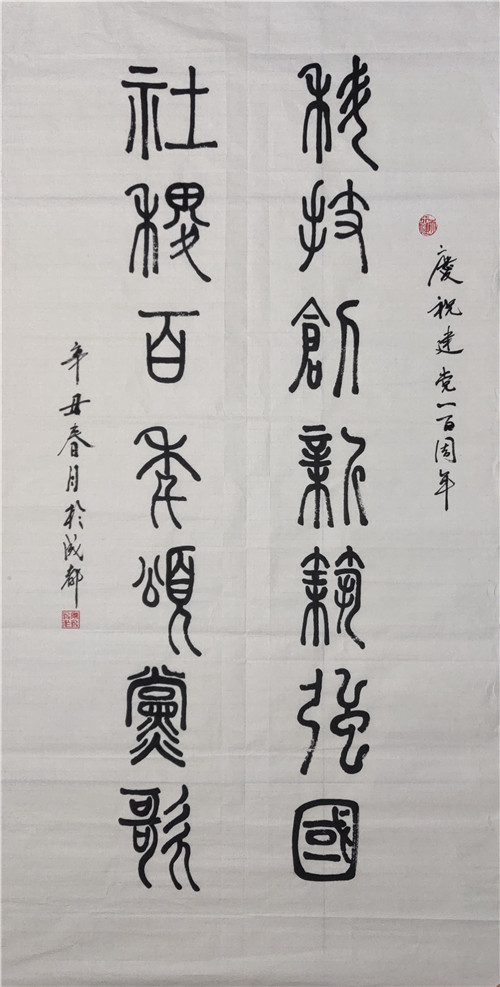 慶祝建党一百周年
科技創新強國
社稷百年頌黨歌
辛丑春月於成都